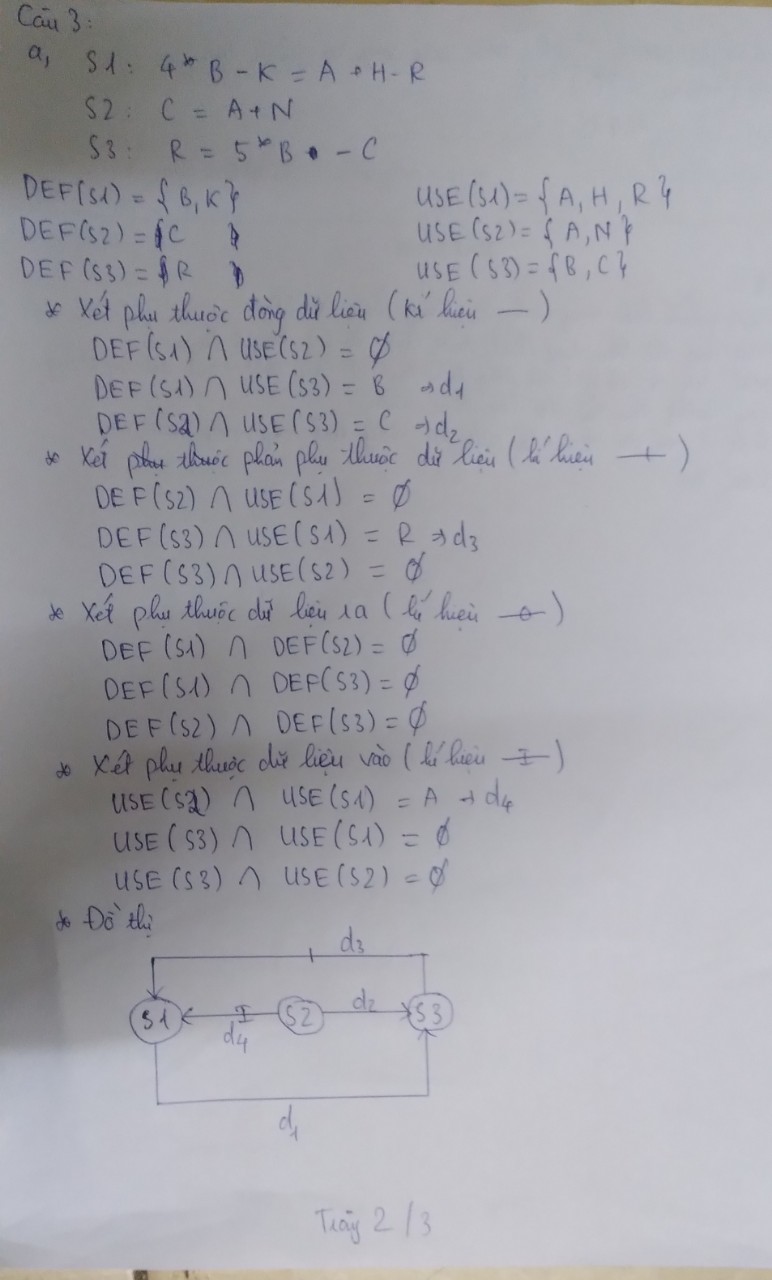 Câu 3:
a, S1: 4*B - K = A + H - R
S2: C = A + N
S3: R = 5*B - C
DEF(S1) = {B, K} USE(S1) = {A, H, R}
DEF(S2) = {C } USE(S2) = {A, N}
DEF(S3) = {R } USE(S3) = {B, C}
* Xét phụ thuộc dòng dữ liệu (kí hiệu —)
DEF(S1) ∩ USE(S2) = ∅
DEF(S1) ∩ USE(S3) = B → d1
DEF(S2) ∩ USE(S3) = C → d2
* Xét phụ thuộc phản phụ thuộc dữ liệu (kí hiệu —|—)
DEF(S2) ∩ USE(S1) = ∅
DEF(S3) ∩ USE(S1) = R → d3
DEF(S3) ∩ USE(S2) = ∅
* Xét phụ thuộc dữ liệu ra (kí hiệu —o—)
DEF(S1) ∩ DEF(S2) = ∅
DEF(S1) ∩ DEF(S3) = ∅
DEF(S2) ∩ DEF(S3) = ∅
* Xét phụ thuộc dữ liệu vào (kí hiệu —I—)
USE(S2) ∩ USE(S1) = A → d4
USE(S3) ∩ USE(S1) = ∅
USE(S3) ∩ USE(S2) = ∅
* Đồ thị
d3
S1 I S2 d2 S3
d4
d1
2/3